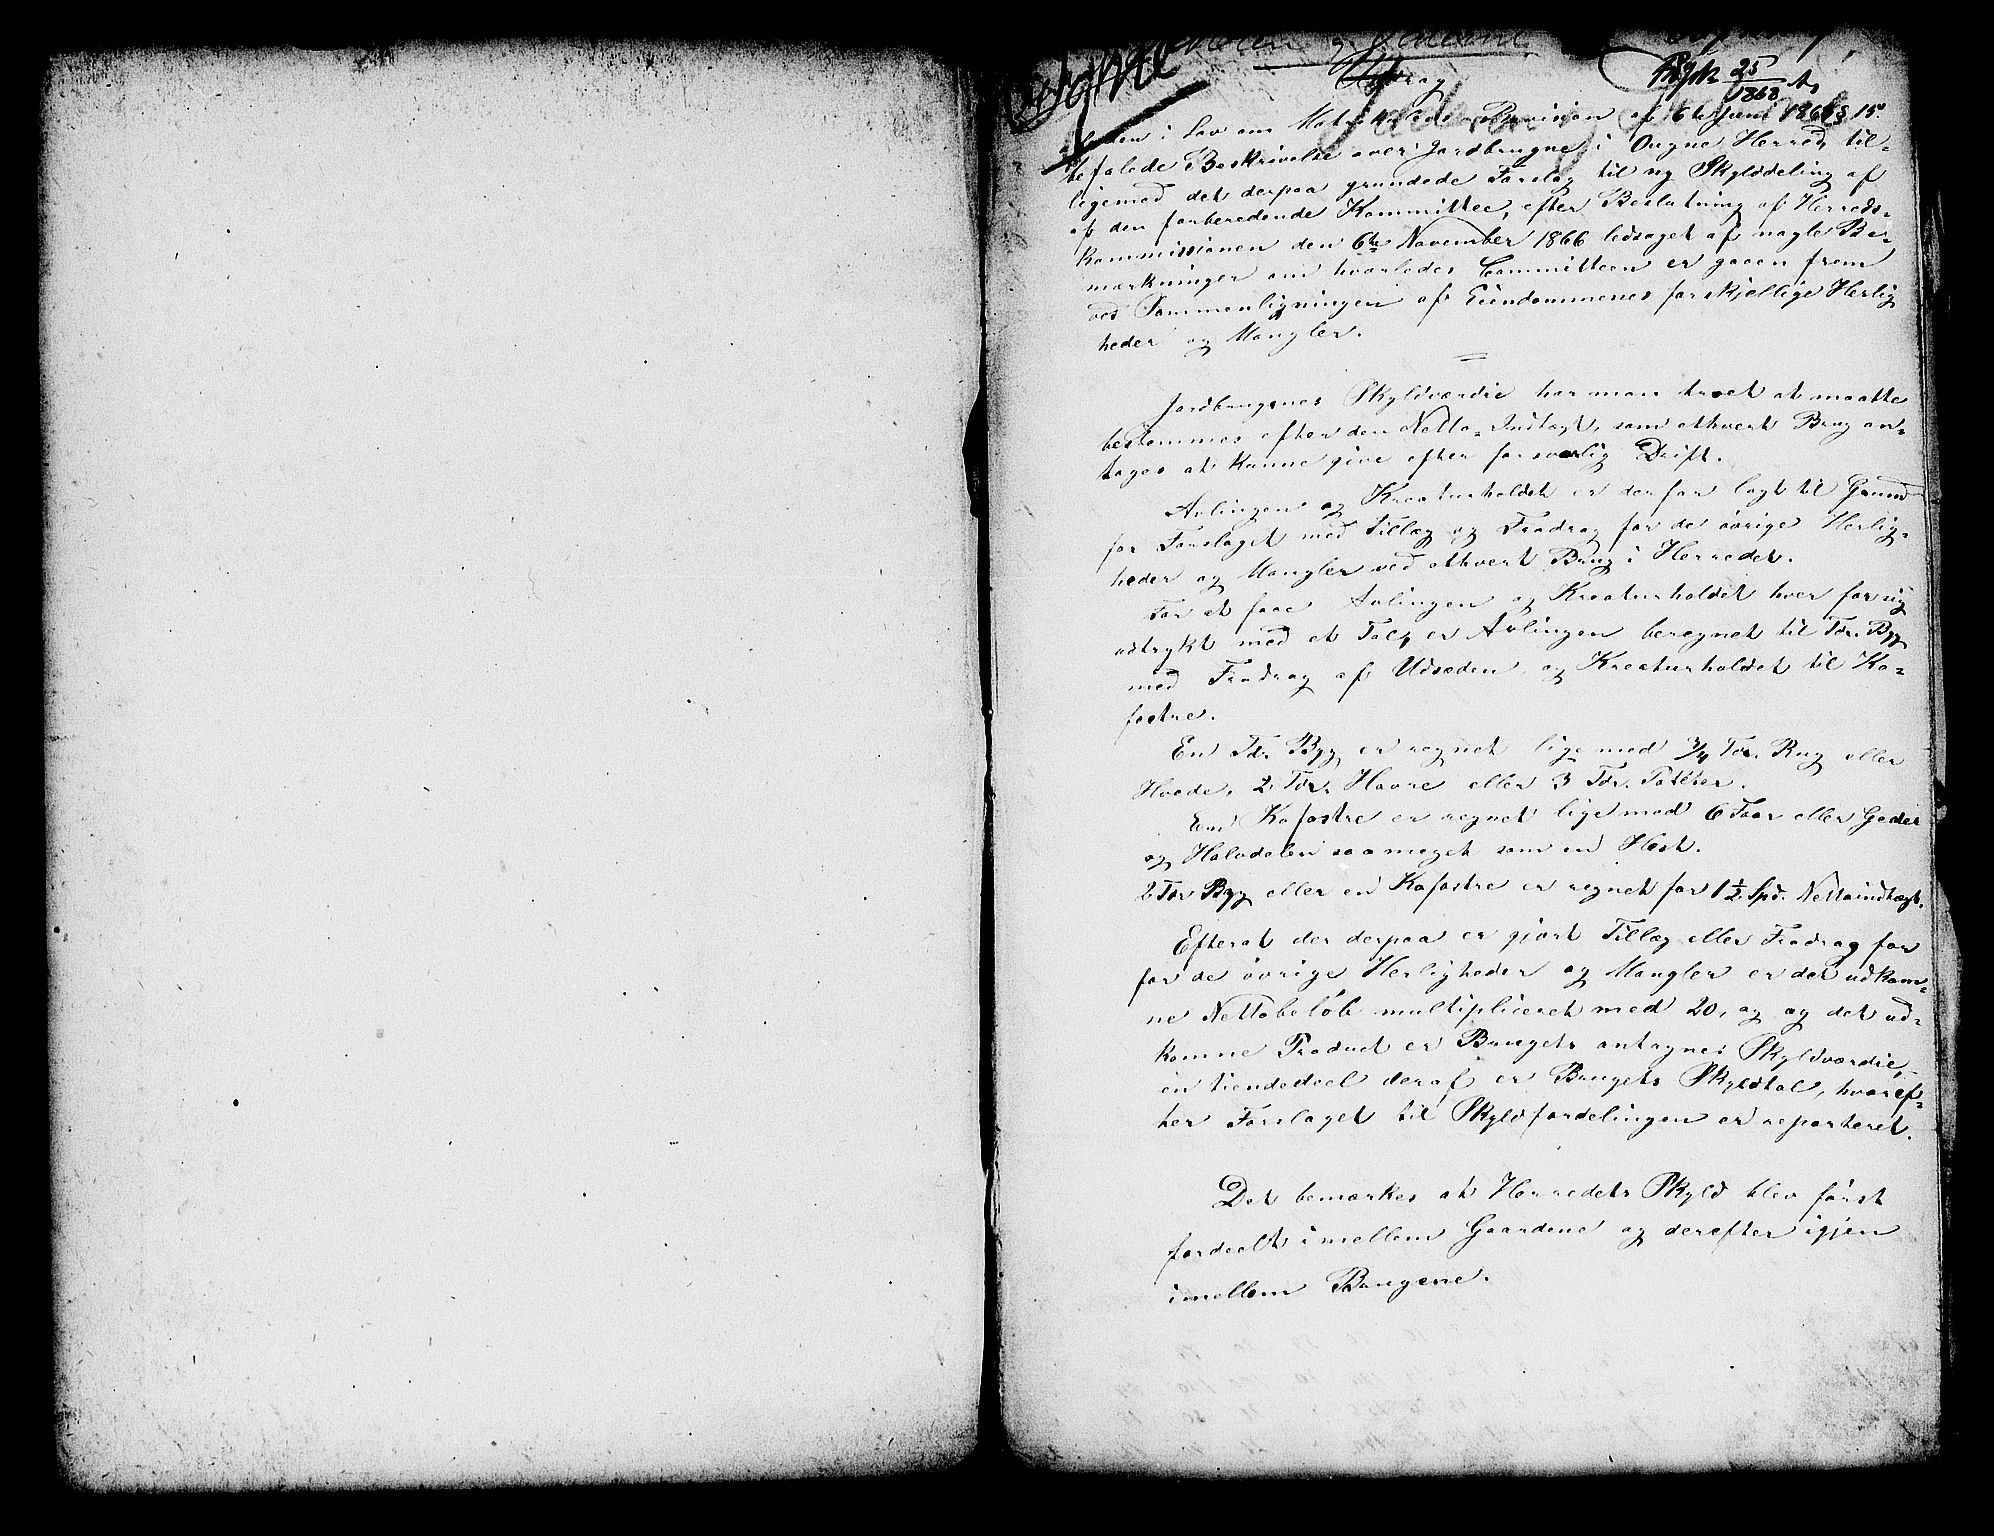 Udtrag
25
1868
af den i Lov om Matrikulens Revision af 6te Juni 1863 § 15
befalede Beskrivelse over Jordbrugne i Ougne Herred, til-
ligemed det derpaa grundede Forslag til ny Skylddeling af
af den forberedende Kommittee, efter Beslutning af Herreds-
kommissionen den 6te November 1866 ledsaget af nogle Be-
mærkninger om hvorledes Committeen er gaaen frem
ved Sammenligningen af Eiendommenes forskjellige Herlig
heder og Mangler.
Jordbrugenes Skyldværdie har man troet at maatte
bestemmes efter den Netto-Indtægt, som ethvert Brug an-
tages at kunne give efter forsvarlig Drift.
Avlingen og Kreaturholdet er derfor lagt til Grund
for Forslaget med Tillæg og Fradrag for de øvrige Herlig-
heder og Mangler ved ethvert Brug i Herredet.
For at faae Avlingen og Kreaturholdet hver for sig
udtrykt med et Tal, er Avlingen beregnet til Tdr. Byg
med Fradrag af Udsæden og Kreaturholdet til Ko-
fostre.
En Td. Byg er regnet lige med 3/4 Tdr. Rug eller
Hvede, 2 Tdr. Havre eller 3 Tdr. Poteter.
Em Kofostre er regnet lige med 6 Faar eller Geder
og Halvdelen saa meget som en Hest.
2 Tdr Byg eller en Kofostre er regnet for 1½ Spd. Nettoindtægt.
Efterat der derpaa er gjort Tillæg eller Fradrag for
for de øvrige Herligheder og Mangler er det udkom-
ne Nettobeløb multipliceret med 20, og og det ud-
komne Product er Brugets antagne Skyldværdie,
en tiendedeel deraf er Brugets Skyldtal, hvoref-
ter Forslaget til Skyldfordelingen er reparteret.
Det bemærkes at Herredets Skyld blev først
fordeelt imellem Gaardene og derefter igjen
imellem Brugene.